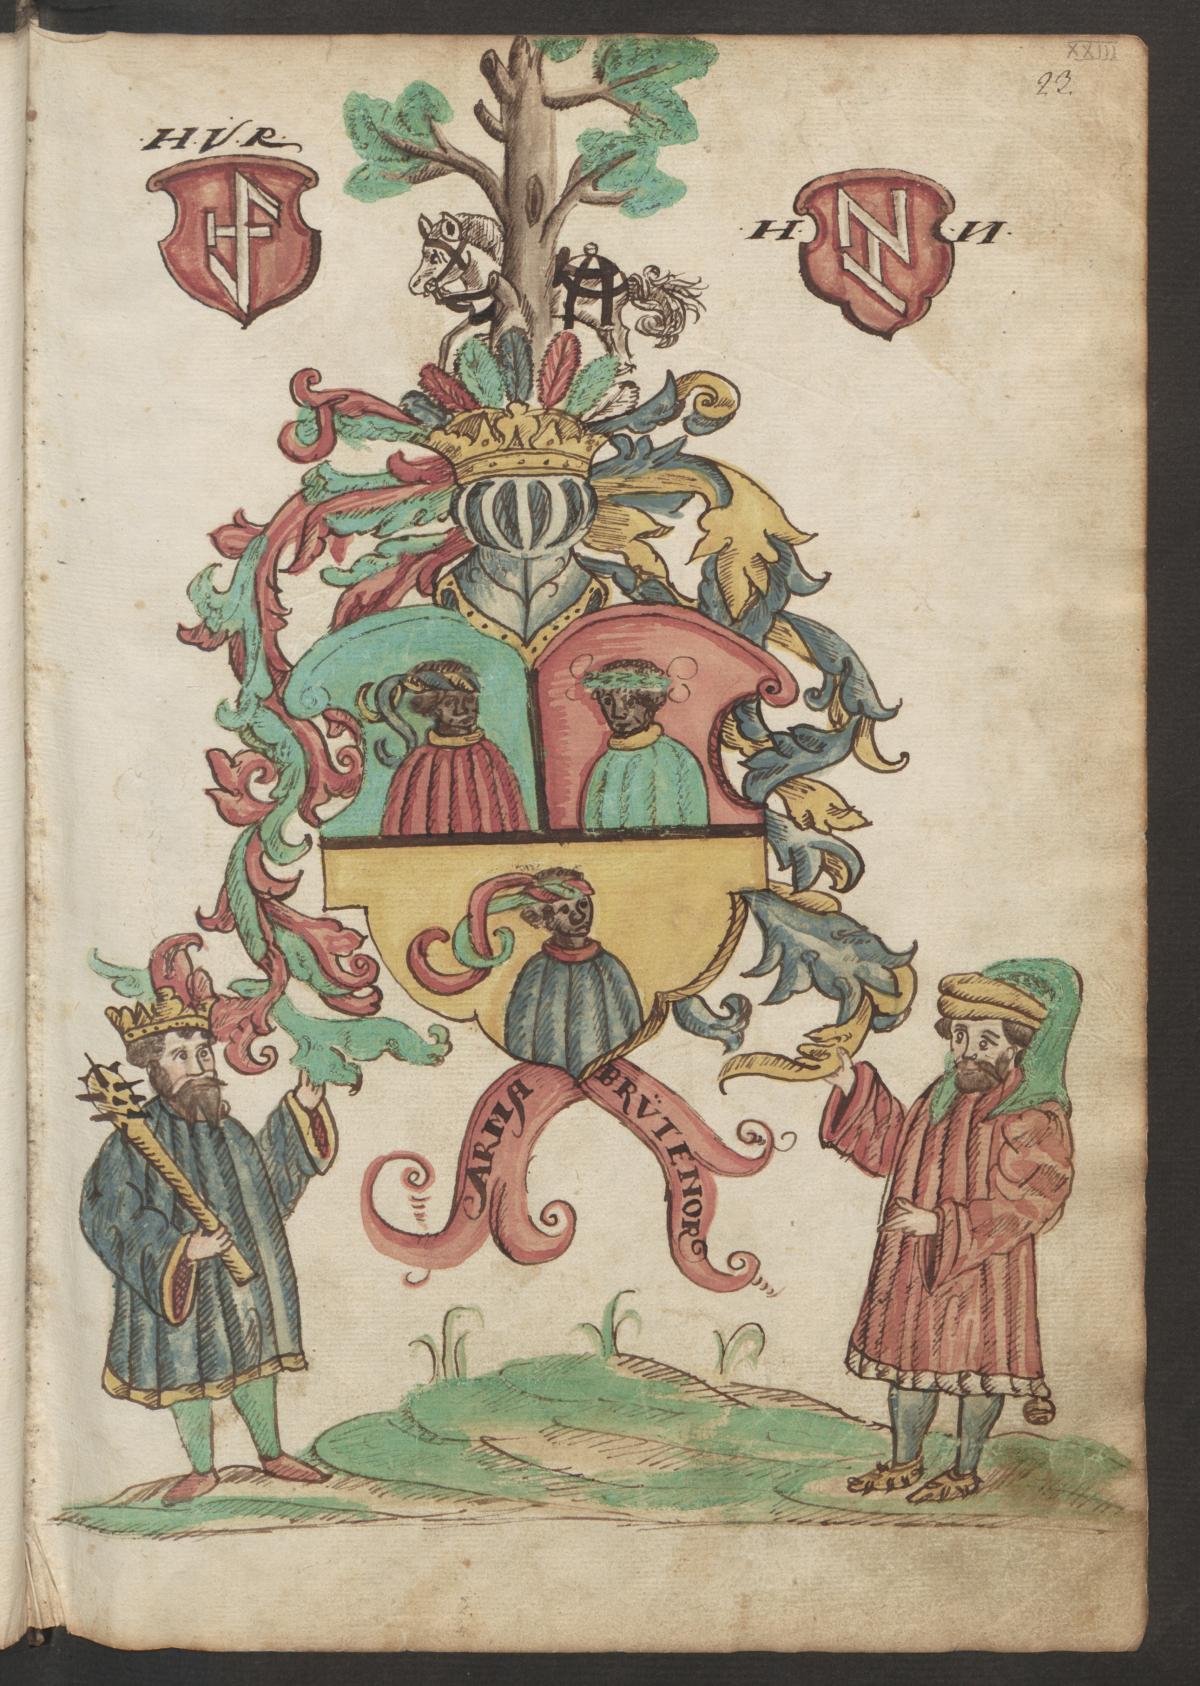 XXIII
23.
·H·V·R·
H· ·N·
ARMA BRVTENOR